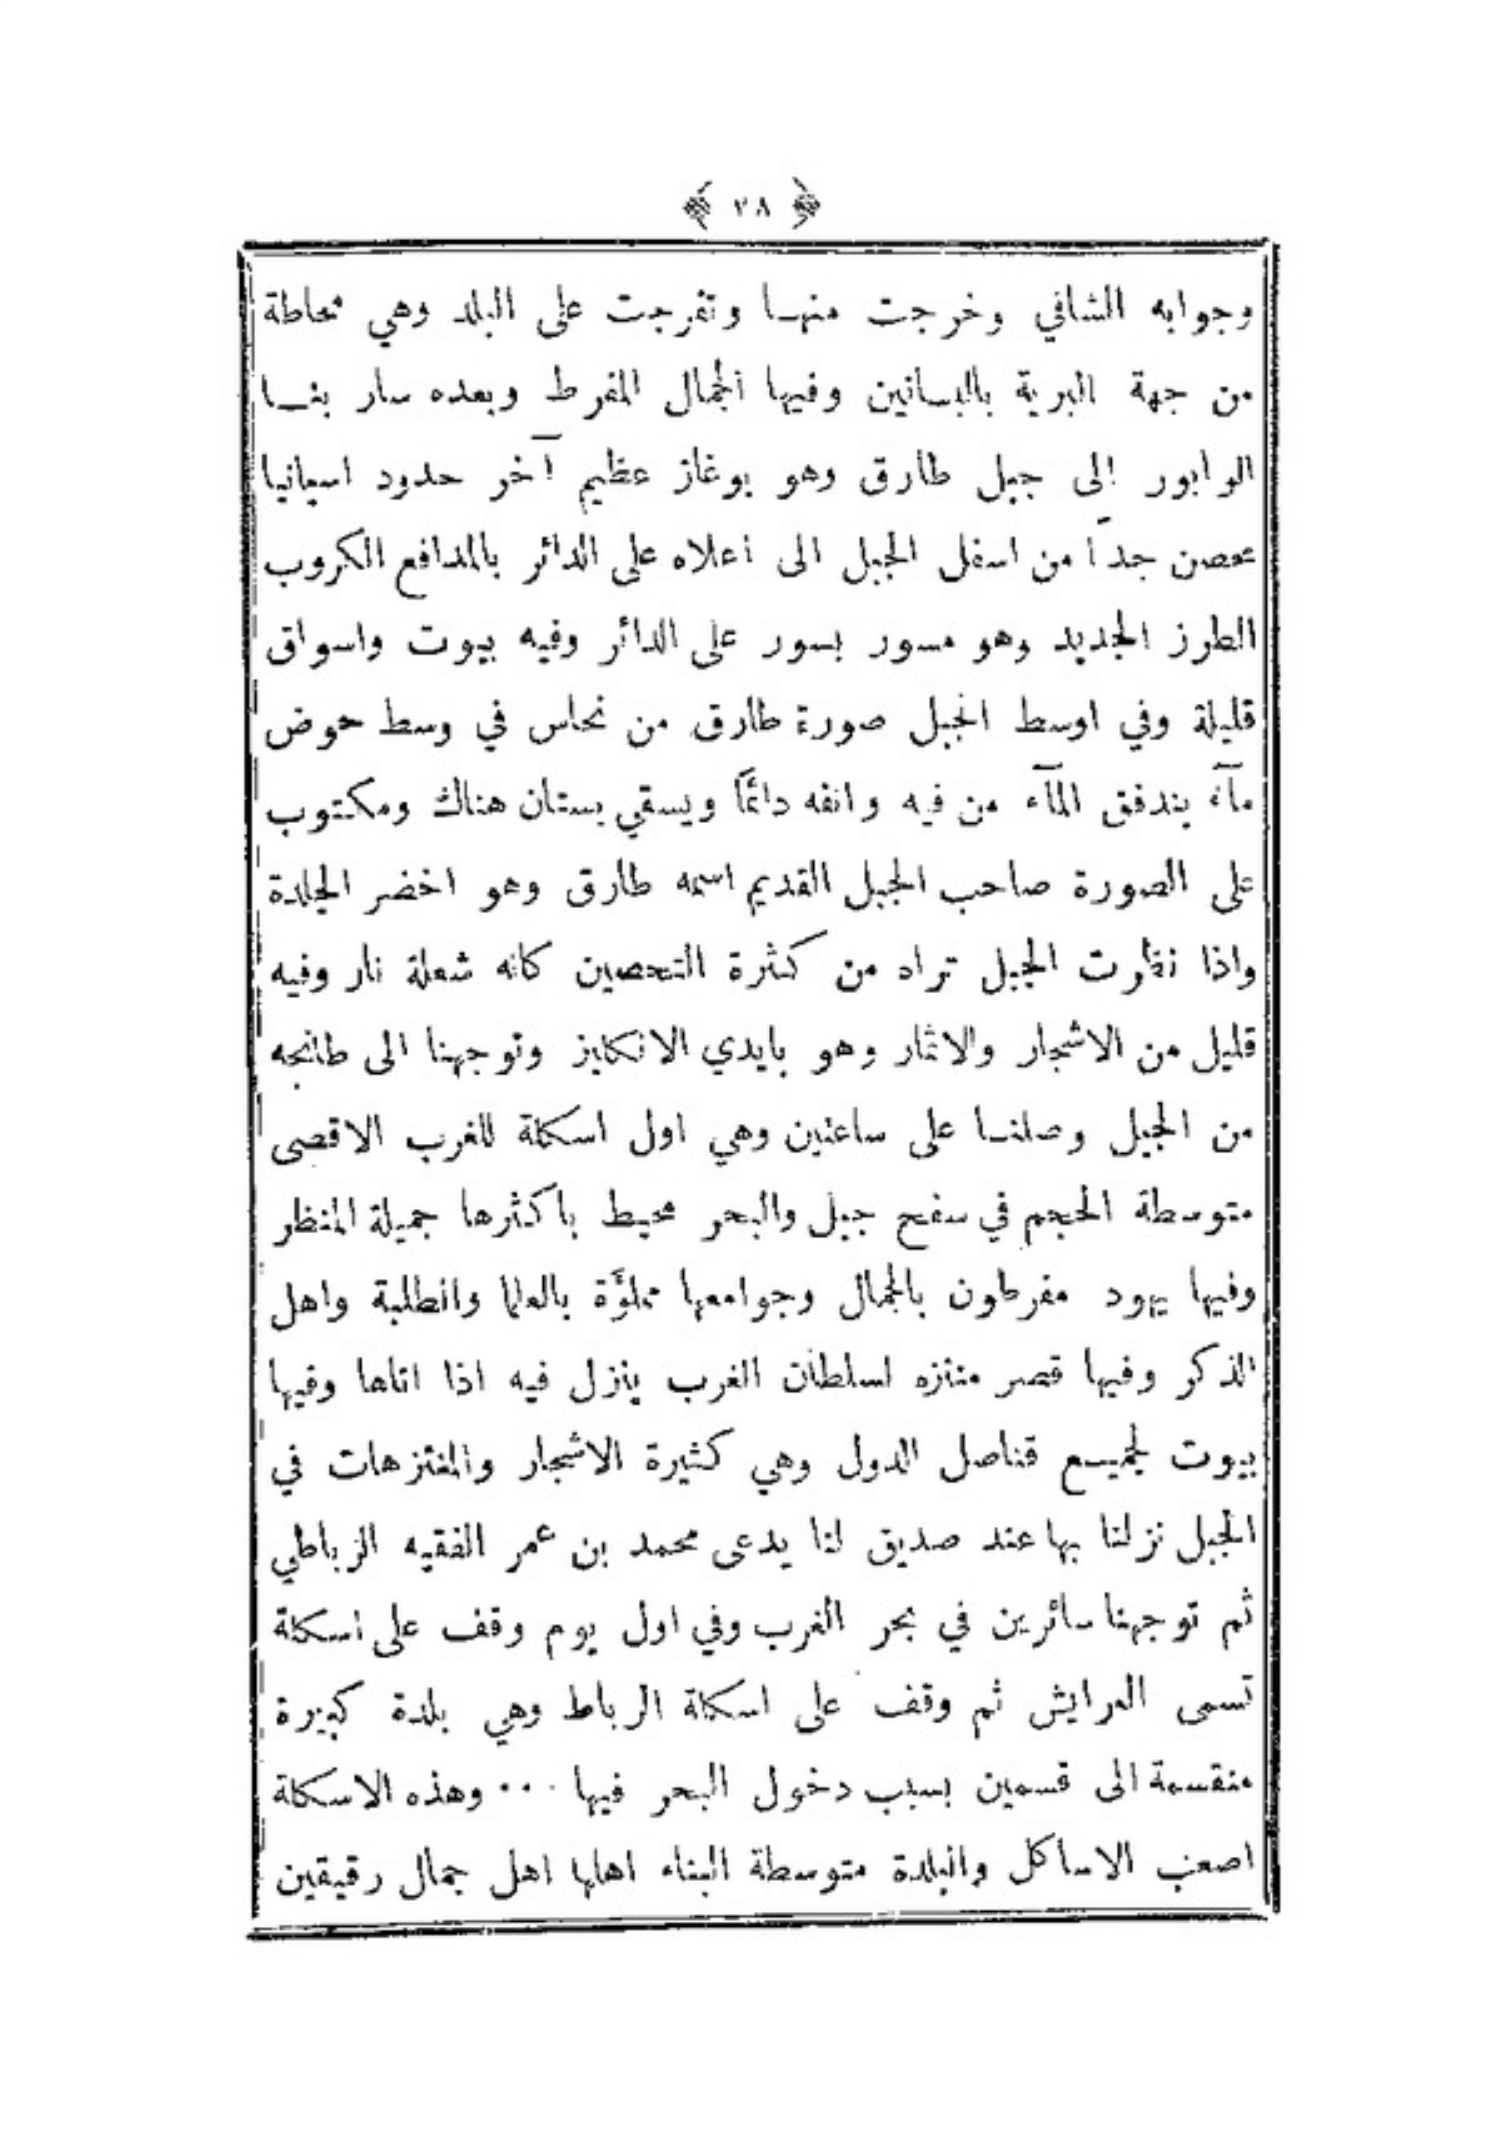 ﴿ ٢٨ ﴾
وجوابه الشافي وخرجت منهـا وتفرجت على البلد وهي محاطة
من جهة البرية بالبساتين وفيها الجمال المفرط وبعده سار بنـا
الوابور الى جبل طارق وهو بوغاز عظيم آخر حدود اسبانيا
محصن جداً من اسفل الجبل الى اعلاه على الدائر بالمدافع الكروب
الطرز الجديد وهو مسور بسور على الدائر وفيه بيوت واسواق
قليلة وفي اوسط الجبل صورة طارق من نحاس في وسط حوض
مآء يندفق المآء من فيه وانفه دائمًا ويسقي بستان هناك ومكتوب
على الصورة صاحب الجبل القديم اسمه طارق وهو اخضر الجلدة
واذا نظرت الجبل تراه من كثرة التحصين كانه شعلة نار وفيه
قليل من الاشجار والاثمار وهو بايدي الانكليز وتوجهنا الى طانجه
من الجبل وصلنـا على ساعتين وهي اول اسكلة للغرب الاقصى
متوسطة الحجم في سفح جبل والبحر محيط باكثرها جميلة المنظر
وفيها يهود مفرطون بالجمال وجوامعها مملوَّة بالعلما والطلبة واهل
الذكر وفيها قصر منتزه لسلطان الغرب ينزل فيه اذا اتاها وفيها
بيوت لجميـع قناصل الدول وهي كثيرة الاشجار والمنتزهات في
الجبل نزلنا بها عند صديق لنا يدعى محمد بن عمر الفقيه الزباطي
ثم توجهنا سائرين في بحر الغرب وفي اول يوم وقف على اسكلة
تسمى العرايش ثم وقف على اسكلة الرباط وهي بلدة كبيرة
منقسمة الى قسمين بسبب دخول البحر فيها ... وهذه الاسكلة
اصعب الاساكل والبلدة متوسطة البناء اهلها اهل جمال رقيقين